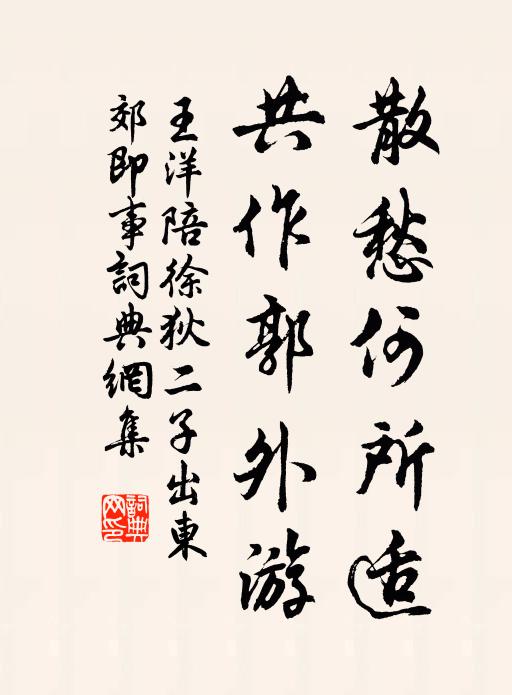 散愁何所适
共作郭外游
王洋陪徐狄二子出東
郊即事詞典網集
詞典
网印